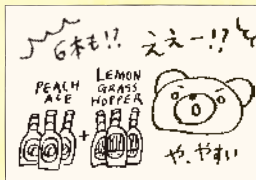 6本も!?
ええー!?
PEACH
ALE
+
LEMON
GRASS
HOPPER
や、やすい